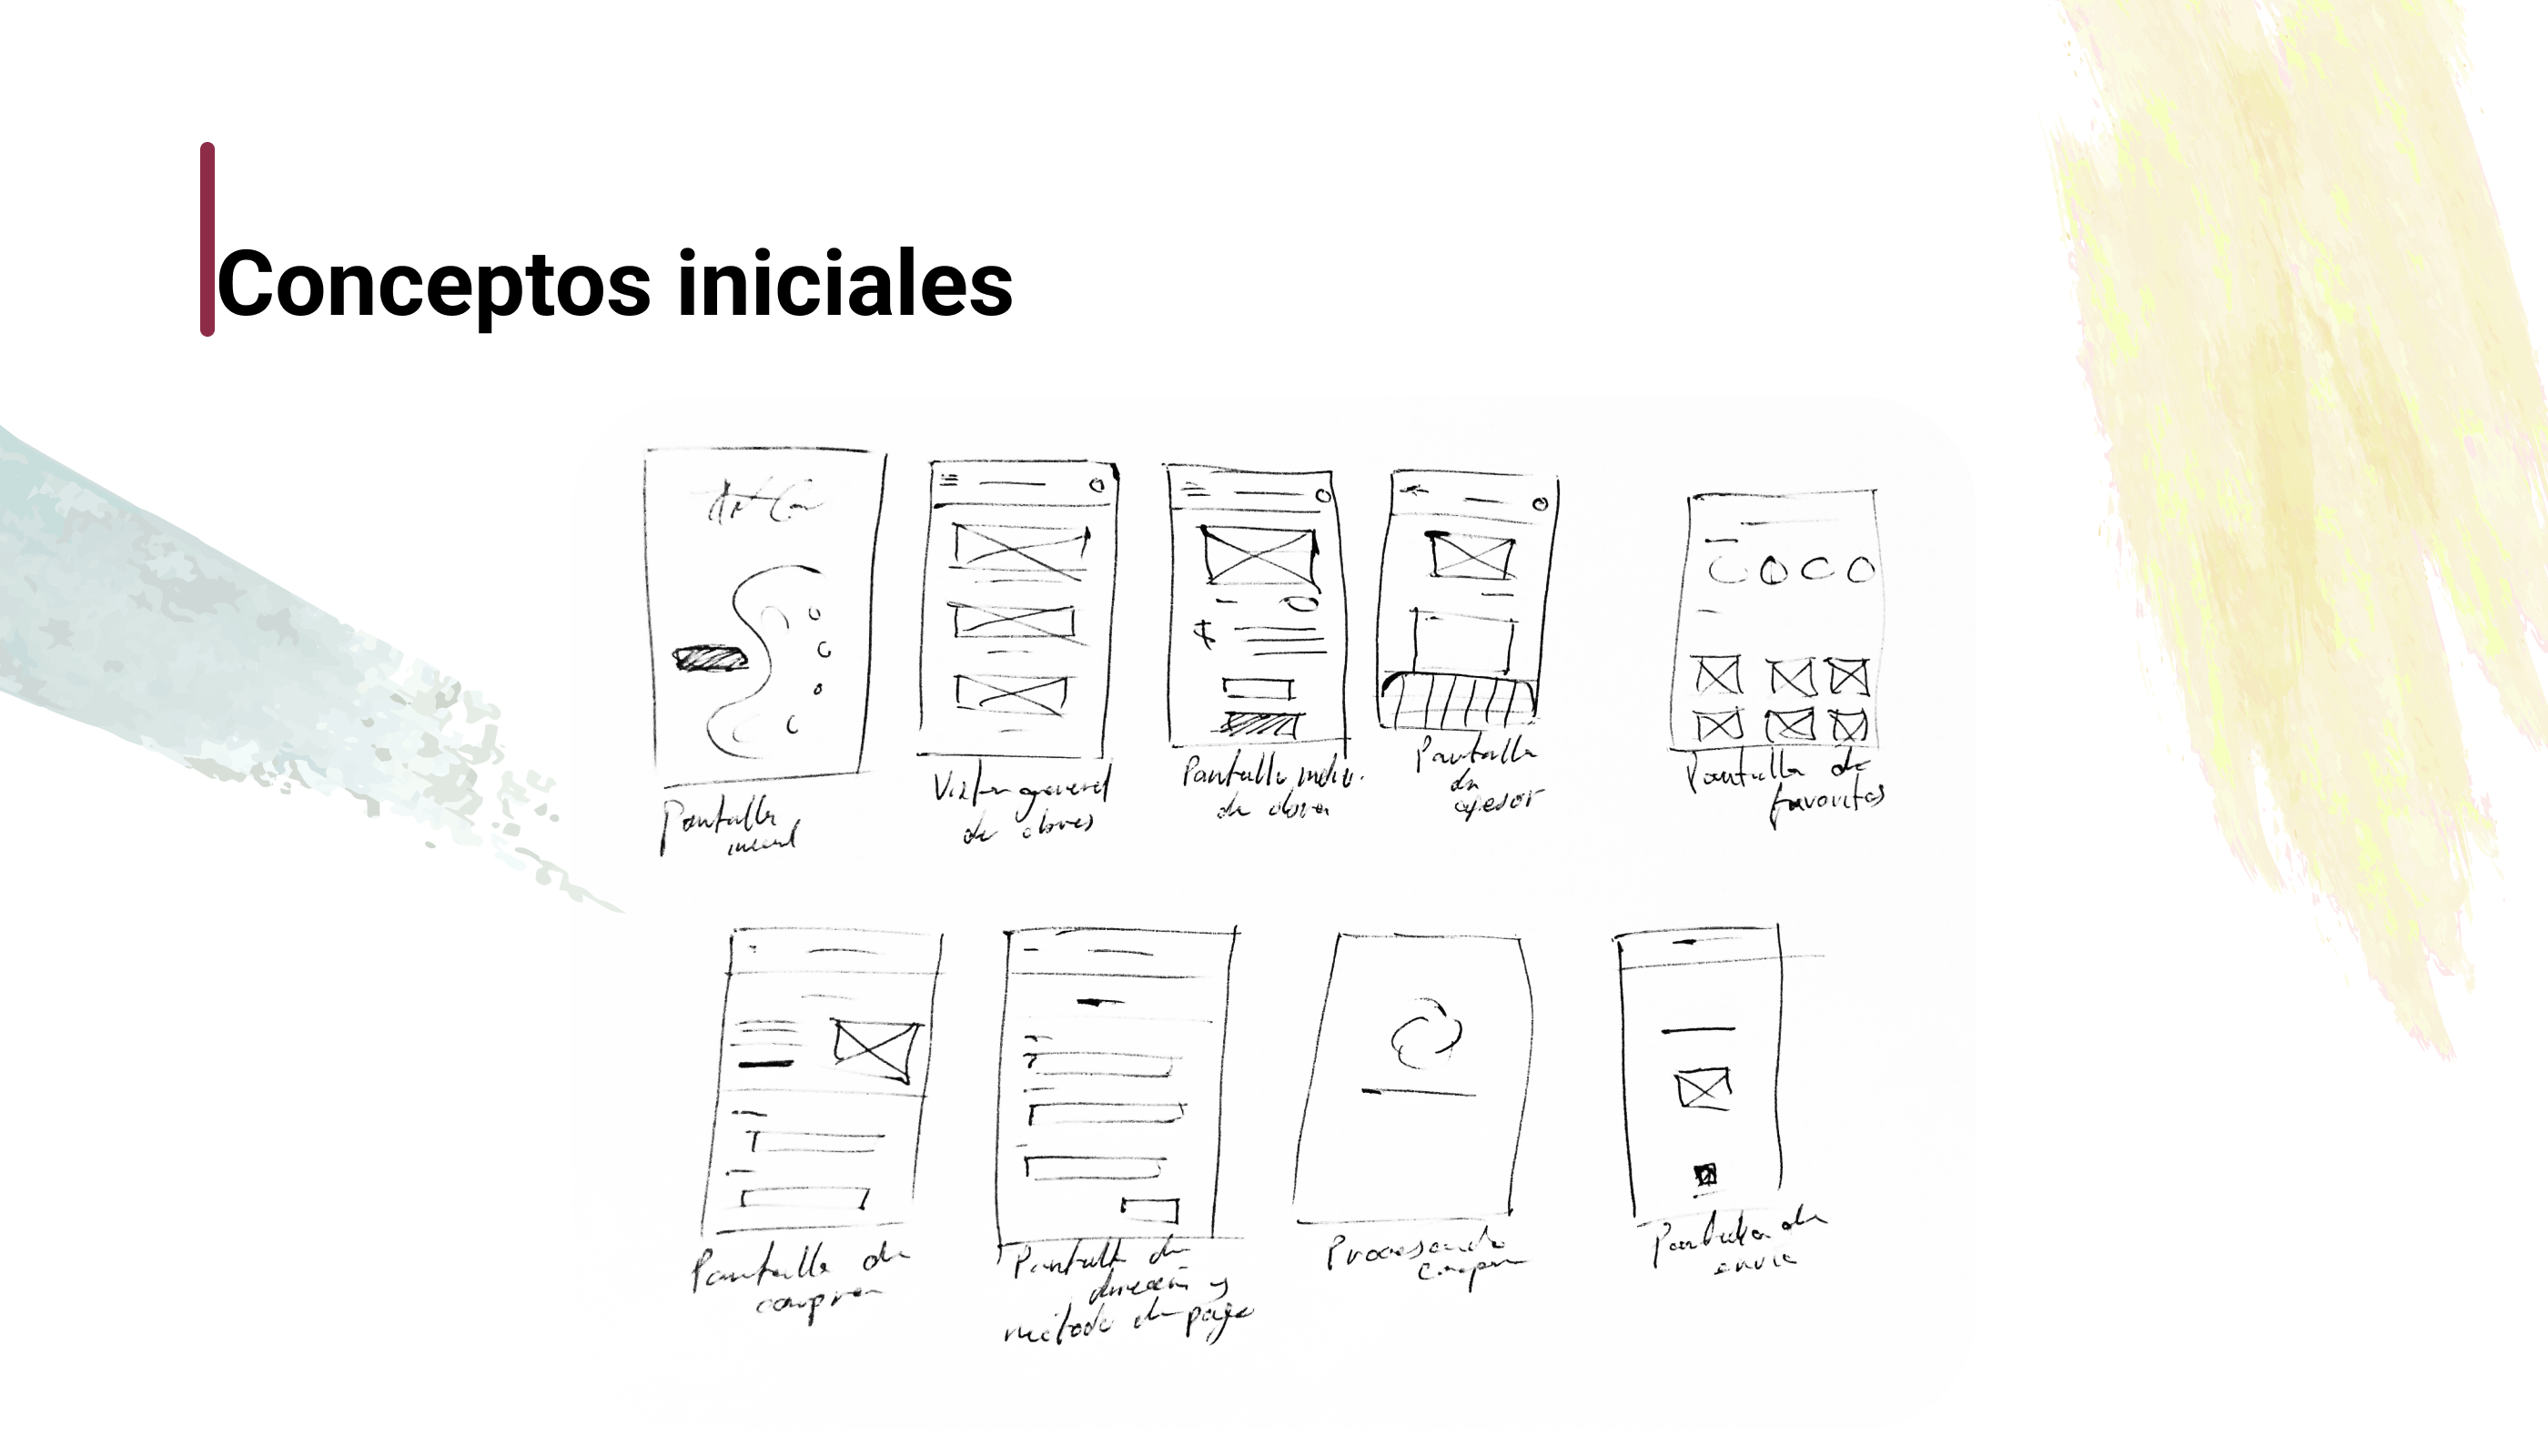 Conceptos iniciales
Pantalla
inicial
Vista general
de obras
Pantalla indiv.
de obra
Pantalla
de
asesor
Pantalla de
favoritos
Pantalla de
compra
Pantalla de
dirección y
método de pago
Procesando
compra
Pantalla de
envio